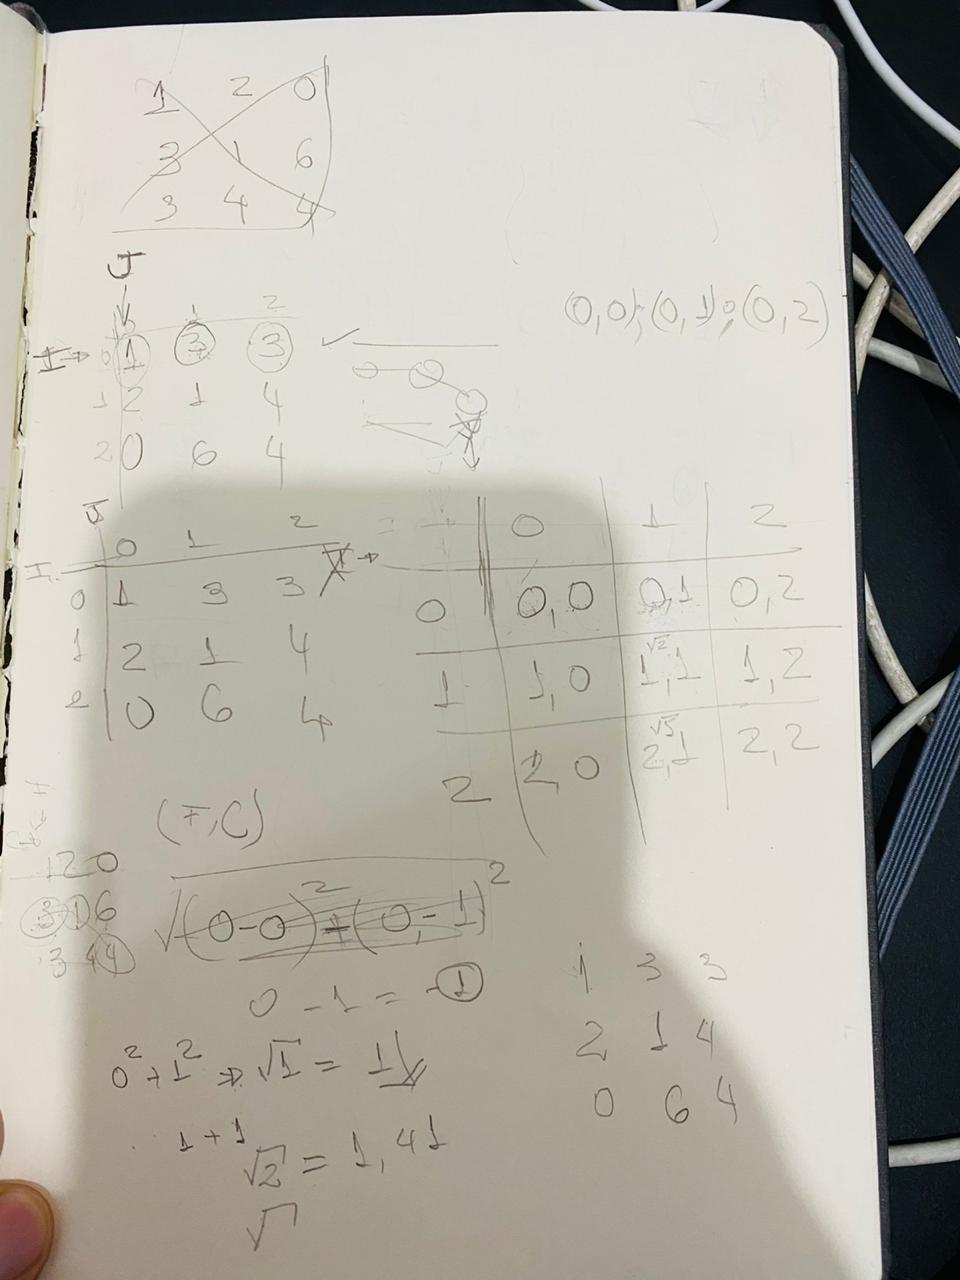 1 2 0
3 1 6
3 4 4
J
1 2
(0,0);(0,1);(0,2)
I → 0 1 3 3 ✓
1 2 1 4
2 0 6 4
J
0 1 2
I
0 1 3 3
1 2 1 4
2 0 6 4
0 1 2
0 0,0 0,1 0,2
√2
1 1,0 1,1 1,2
√5
2 2,0 2,1 2,2
(F,C)
1 2 0
3 1 6
3 4 4
√(0-0)² + (0-1)²
0 - 1 = -1
0² + 1² → √1 = 1
1 + 1
√2 = 1,41
√
1 3 3
2 1 4
0 6 4